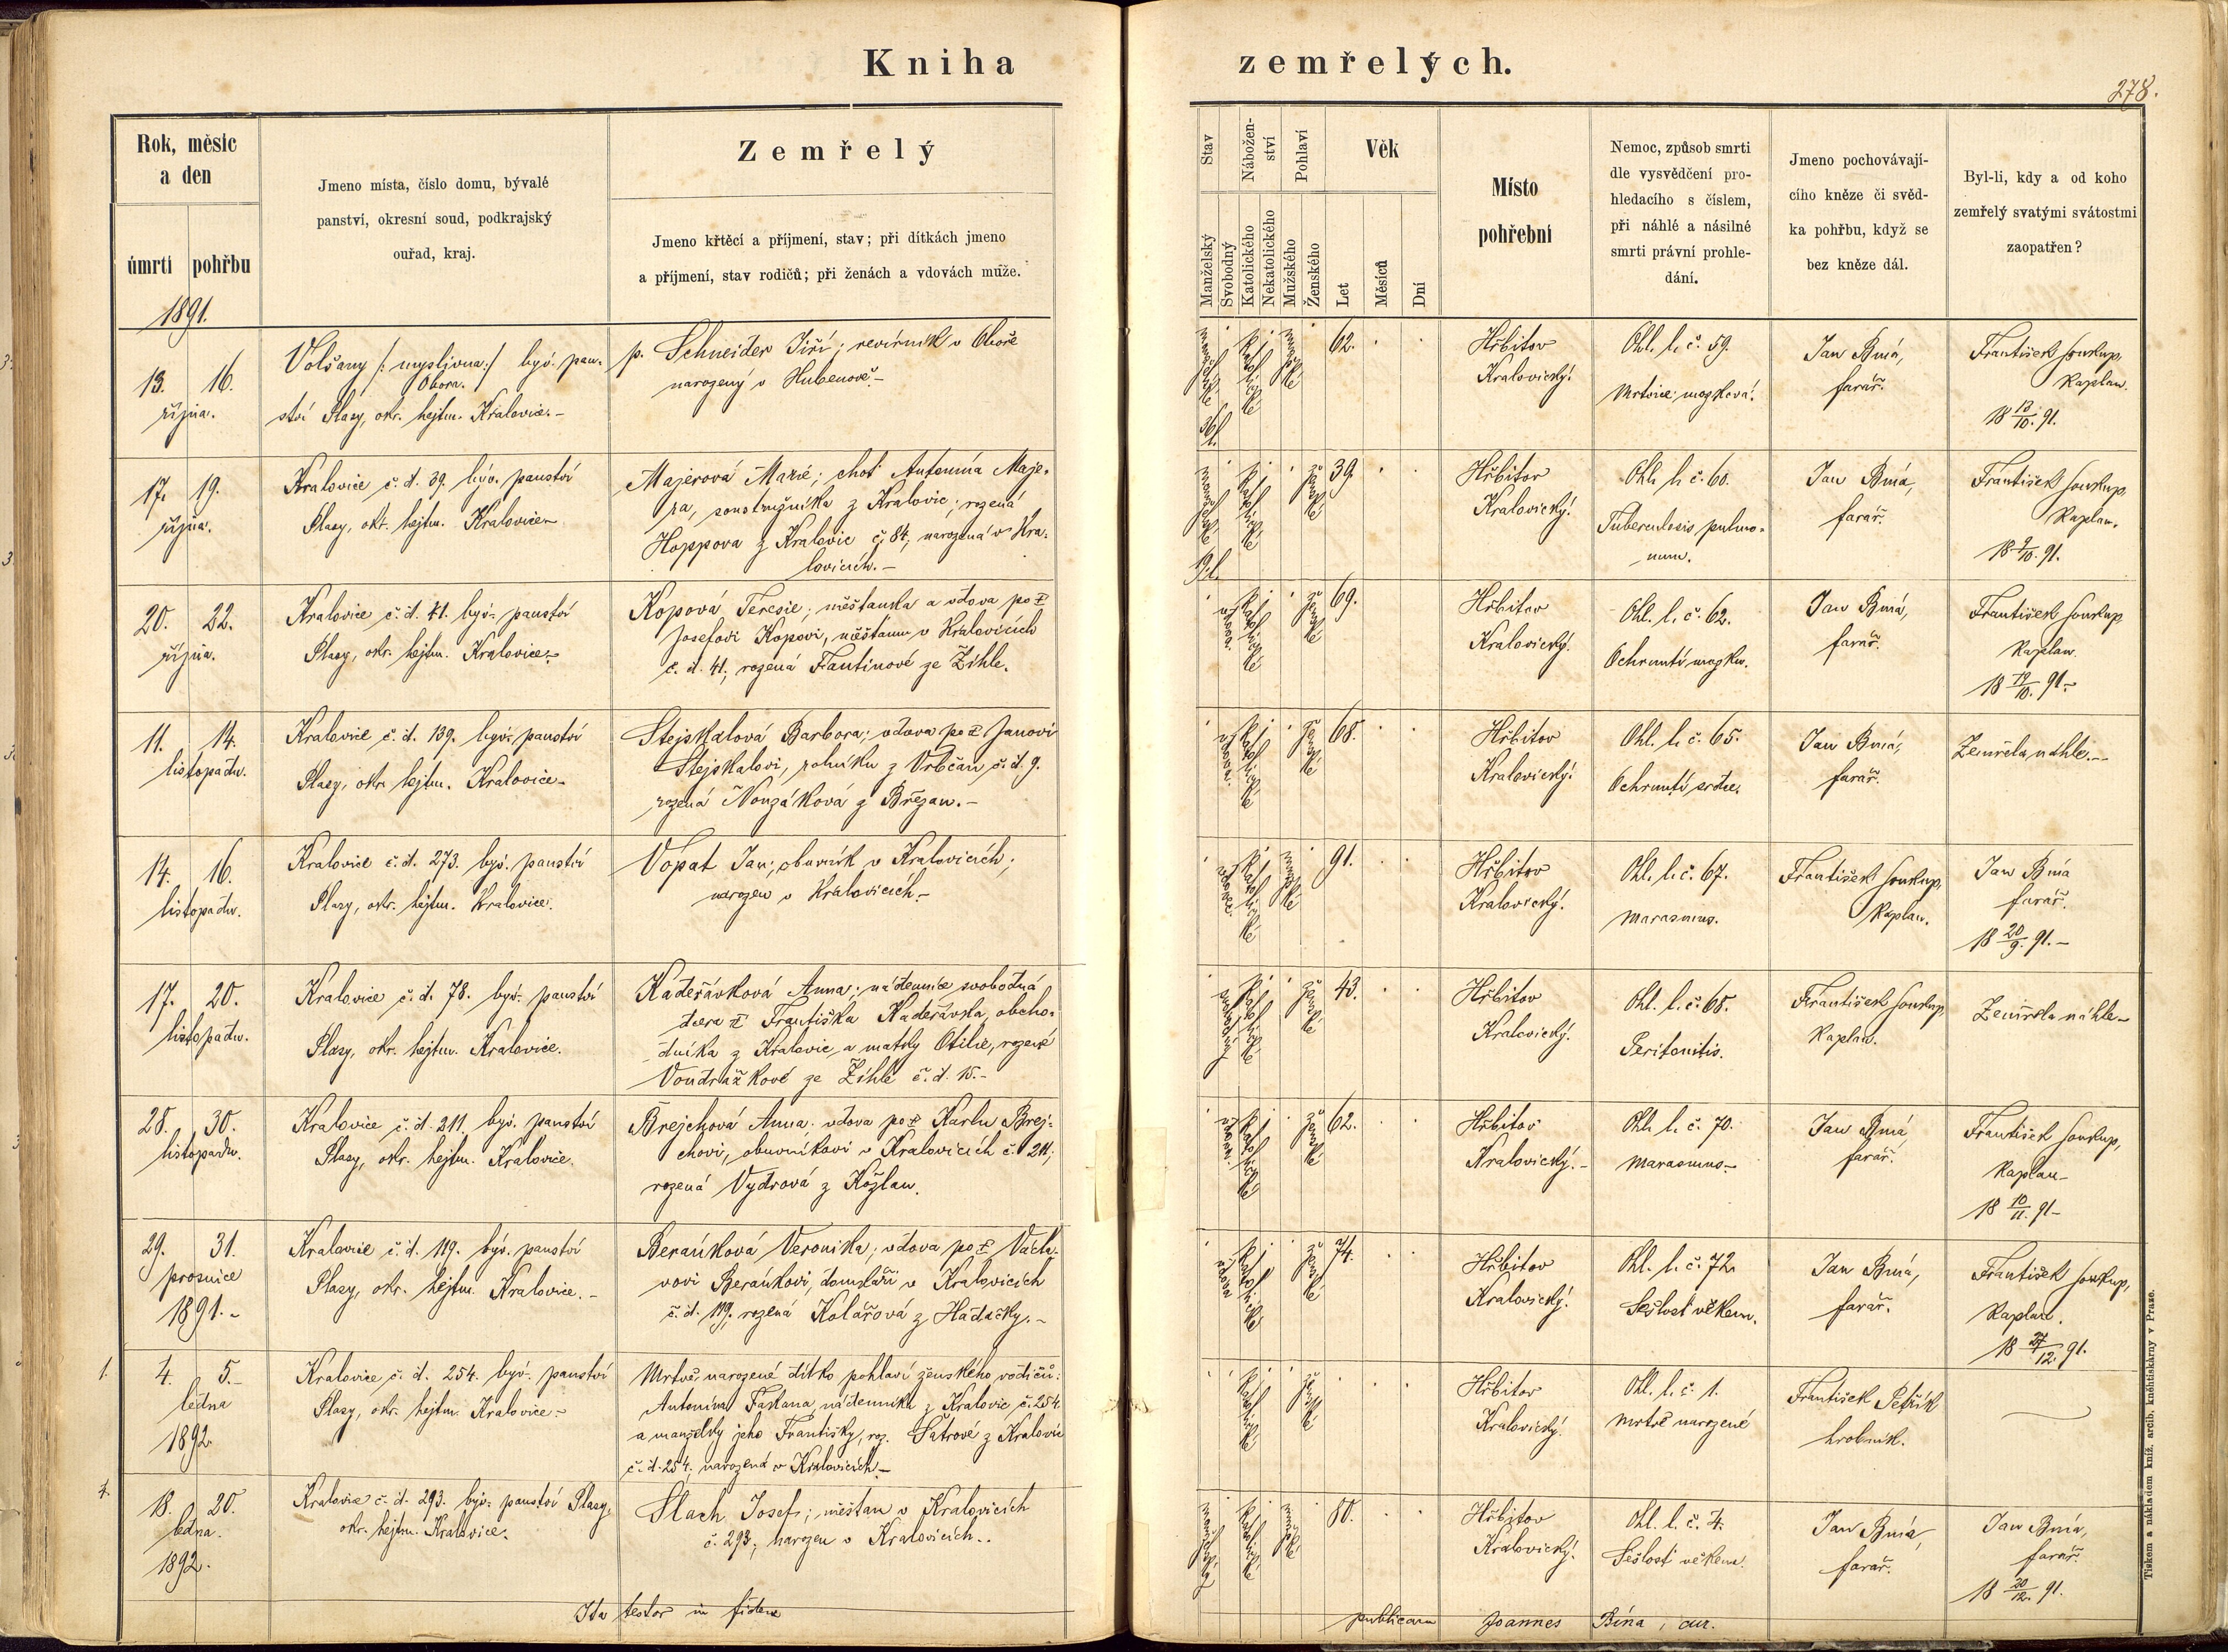 Kniha zemřelých.
278.
Rok, měsíc
a den
úmrtí
pohřbu
1891.
Jmeno místa, číslo domu, bývalé
panství, okresní soud, podkrajský
ouřad, kraj.
Zemřelý
Jmeno křtěcí a příjmení, stav; při dítkách jmeno
a příjmení, stav rodičů; při ženách a vdovách muže.
Stav
Manželský
Svobodný
Nábožen-
ství
Katolického
Nekatolického
Pohlaví
Mužského
Ženského
Věk
Let
Měsíců
Dní
Místo
pohřební
Nemoc, způsob smrti
dle vysvědčení pro-
hledacího s číslem,
při náhlé a násilné
smrti právní prohle-
dání.
Jmeno pochovávají-
cího kněze či svěd-
ka pohřbu, když se
bez kněze dál.
Byl-li, kdy a od koho
zemřelý svatými svátostmi
zaopatřen?
13. 16.
října.
Volšany /: myslivna :/ býv. pan-
Obora.
ství Plasy, okr. hejtm. Kralovic.-
p. Schneider Jiří; revírník v Oboře
narozený v Hubenově.-
62.
Hřbitov
Kralovický.
Ohl. l. č. 59.
Mrtvice mozková.
Jan Bína,
farář.
František Soukup,
kaplan.
18 13/10. 91.
17. 19.
října.
Kralovice č. d. 39. býv. panství
Plasy, okr. hejtm. Kralovice-
Majerová Marie; choť Antonína Maje-
ra, soustružníka z Kralovic; rozená
Hoppova z Kralovic č. 84; narozená v Kra-
lovicích.-
39.
Hřbitov
Kralovický.
Ohl. l. č. 60.
Tuberculosis pulmo-
num.
Jan Bína,
farář.
František Soukup,
kaplan.
18 9/10. 91.
20. 22.
října.
Kralovice č. d. 41. býv. panství
Plasy, okr. hejtm. Kralovice.-
Kopová Teresie; měšťanka a vdova po
Josefovi Kopovi, měšťanu v Kralovicích
č. d. 41; rozená Fantinové ze Žihle.
69.
Hřbitov
Kralovický.
Ohl. l. č. 62.
Ochrnutí mozku.
Jan Bína,
farář.
František Soukup
kaplan.
18 19/10. 91.-
11. 14.
listopadu.
Kralovice č. d. 139. býv. panství
Plasy, okr. hejtm. Kralovice-
Stejskalová Barbora; vdova po Janovi
Stejskalovi, rolníku z Vrbčan č. d. 9.
rozená Nouzáková z Břežan.-
68.
Hřbitov
Kralovický.
Ohl. l. č. 65.
Ochrnutí srdce.
Jan Bína,
farář.
Zemřela náhle.-
14. 16.
listopadu.
Kralovice č. d. 273. býv. panství
Plasy, okr. hejtm. Kralovice.
Vopat Jan; obuvník v Kralovicích;
narozen v Kralovicích.-
91.
Hřbitov
Kralovický.
Ohl. l. č. 67.
Marasmus.
František Soukup,
kaplan.
Jan Bína
farář.
18 20/9. 91.-
17. 20.
listopadu.
Kralovice č. d. 78. býv. panství
Plasy, okr. hejtm. Kralovice.
Kadeřávková Anna; nádennice svobodná
dcera Františka Kadeřávka, obcho-
dníka z Kralovic, a matky Otilie, rozené
Voudražkové ze Žihle č. d. 15.-
43.
Hřbitov
Kralovický.
Ohl. l. č. 68.
Peritonitis.
František Soukup,
kaplan.
Zemřela náhle-
28. 30.
listopadu.
Kralovice č. d. 211. býv. panství
Plasy, okr. hejtm. Kralovice.
Brejchová Anna. vdova po Karlu Brej-
chovi, obuvníkovi v Kralovicích č. 211;
rozená Vydrová z Kožlan.
62.
Hřbitov
Kralovický.-
Ohl. l. č. 70.
Marasmus-
Jan Bína
farář.
František Soukup,
kaplan-
18 10/11. 91-
29. 31.
prosince
1891.-
Kralovice č. d. 119. býv. panství
Plasy, okr. hejtm. Kralovice.-
Beránková Veronika; vdova po Václa-
vovi Beránkovi, domkáři v Kralovicích
č. d. 119; rozená Kolářová z Hadačky.-
74.
Hřbitov
Kralovický.
Ohl. l. č. 72.
Sešlost věkem.
Jan Bína,
farář.
František Soukup,
kaplan.
18 27/12. 91.
1.
4. 5.-
ledna
1892.
Kralovice č. d. 254. býv. panství
Plasy, okr. hejtm. Kralovice-
Mrtvě narozené dítko pohlaví ženského rodičů:
Antonína Fastana, nádenníka z Kralovic č. 254
a manželky jeho Františky, roz. Šatrové z Kralovic
č. d. 254; narozená v Kralovicích-
Hřbitov
Kralovický.
Ohl. l. č. 1.
mrtvě narozené
František Petřík
hrobník.
4.
18. 20.
ledna.
1892.
Kralovice č. d. 293. býv. panství Plasy,
okr. hejtm. Kralovice.
Slach Josef; měšťan v Kralovicích
č. 293; narozen v Kralovicích..
80.
Hřbitov
Kralovický.
Ohl. l. č. 4.
Sešlost věkem.
Jan Bína,
farář.
Jan Bína,
farář.
18 20/12. 91.
Ita testor in fidem publicam Joannes Bína, cur.
Tiskem a nákladem kníž. arcib. knihtiskárny v Praze.